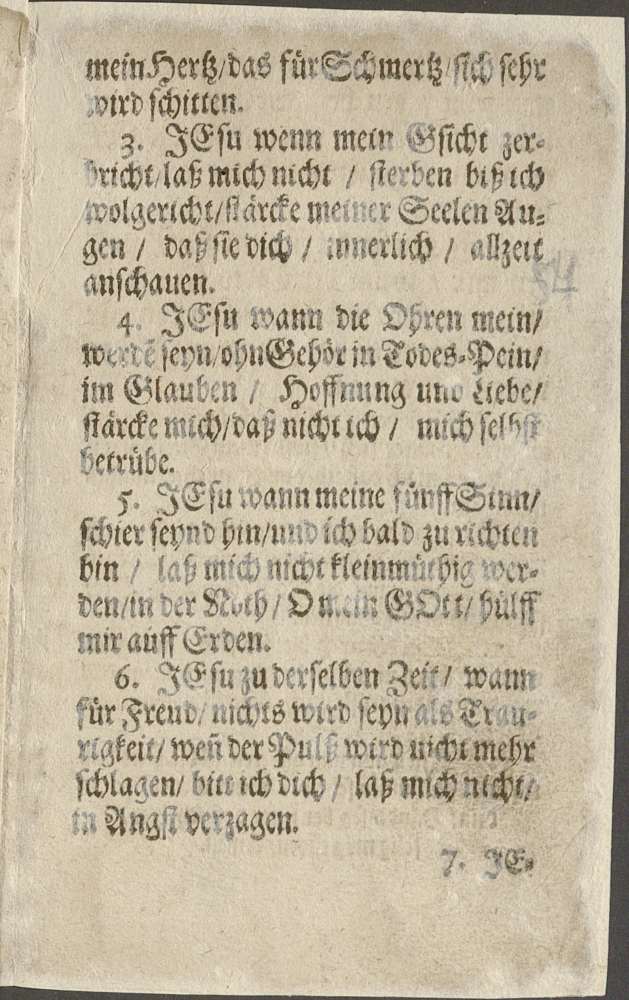 mein Hertz/das für Schmertz/sich sehr
wird schitten.
3. JEsu wenn mein Gsicht zer-
bricht/laß mich nicht / sterben biß ich
wolgericht/stärcke meiner Seelen Au-
gen / daß sie dich / innerlich / allzeit
anschauen.
4. JEsu wann die Ohren mein/
werdē seyn/ohn Gehör in Todes-Pein/
im Glauben / Hoffnung und Liebe/
stärcke mich/daß nicht ich / mich selbst
betrübe.
5. JEsu wann meine fünff Sinn/
schier seynd hin/und ich bald zu richten
bin / laß mich nicht kleinmüthig wer-
den/in der Noth/ O mein GOtt/ hülff
mir auff Erden.
6. JEsu zu derselben Zeit/ wann
für Freud/ nichts wird seyn als Trau-
rigkeit/ weñ der Pulß wird nicht mehr
schlagen/ bitt ich dich / laß mich nicht/
in Angst verzagen.
7. JE-